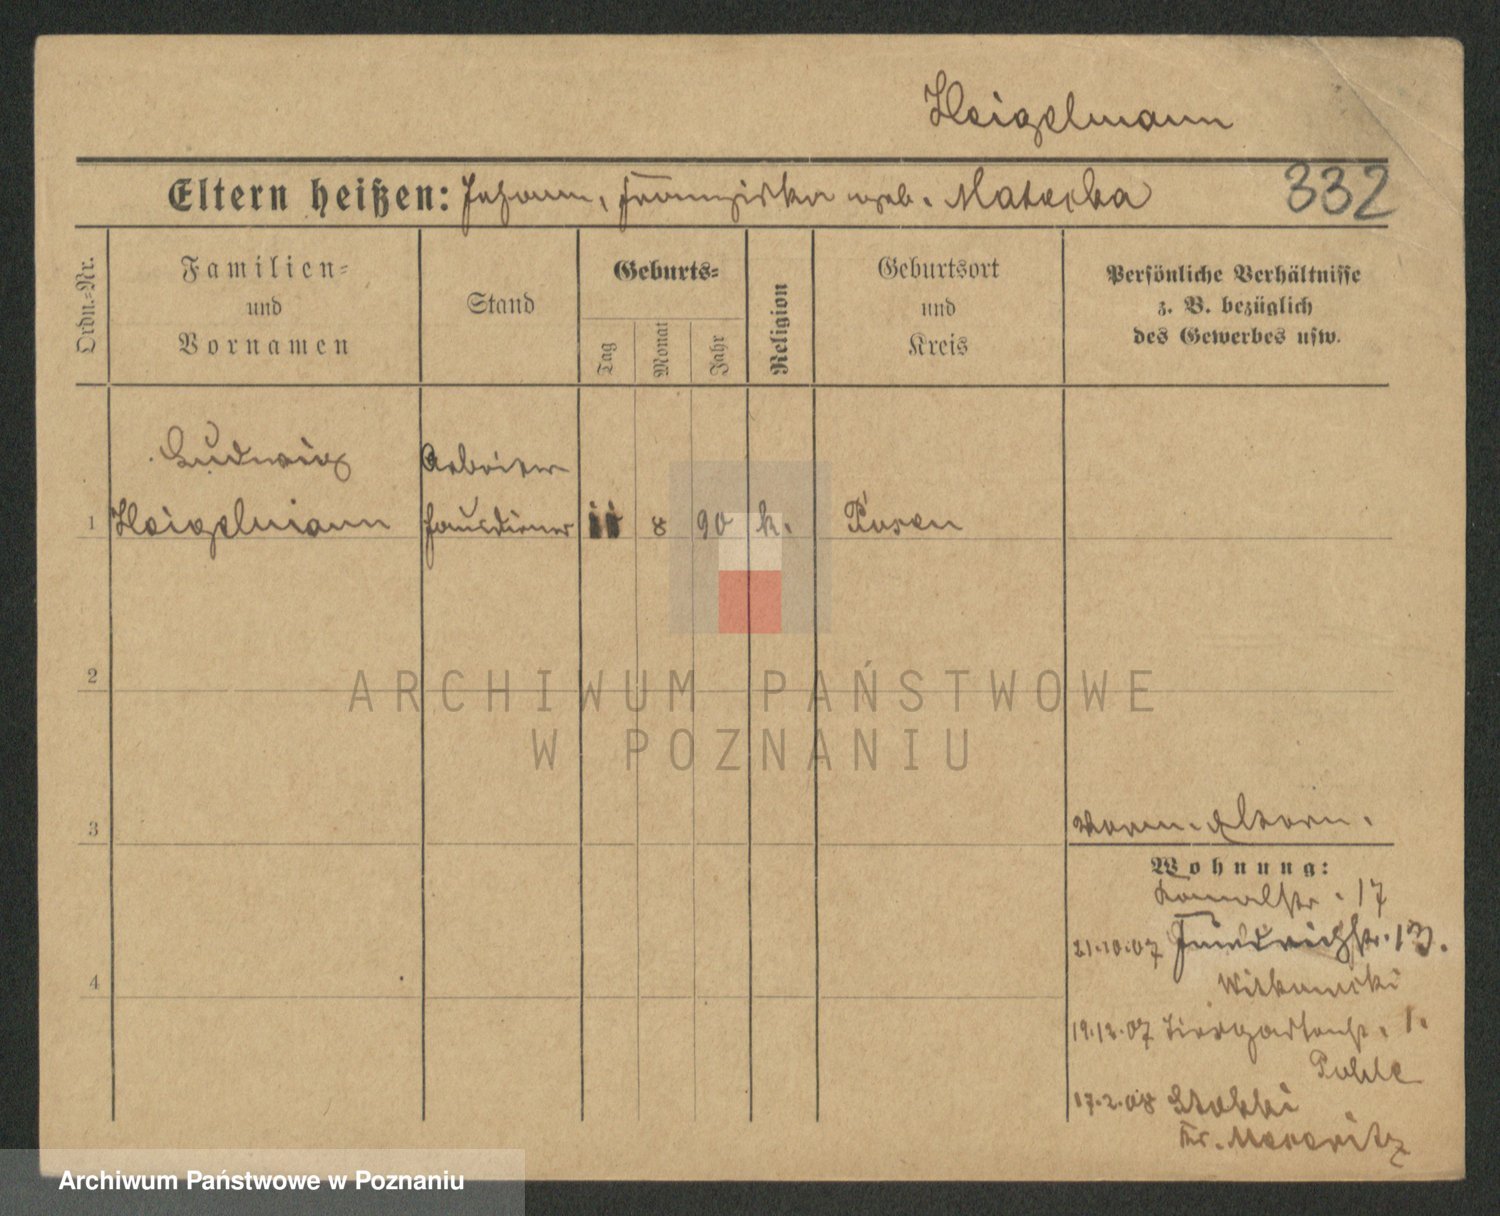 Heigelmann
Eltern heißen: Johann, Franziska geb. Matecka
332
Ordn.=Nr.
Familien=
und
Vornamen
Stand
Geburts=
Tag
Monat
Jahr
Religion
Geburtsort
und
Kreis
Persönliche Verhältnisse
z. B. bezüglich
des Gewerbes usw.
Ludwig
Arbeiter
1 Heigelmann Hausdiener 11 8 90 k. Posen
2
ARCHIWUM PAŃSTWOWE
W POZNANIU
3
Eltern.
Wohnung:
Kanalstr. 17
21.10.07 Friedrichstr. 13.
Witkowski
4
19.12.07 Tiergartenstr. 1.
Pohle
17.2.08
Kr. Meseritz
Archiwum Państwowe w Poznaniu